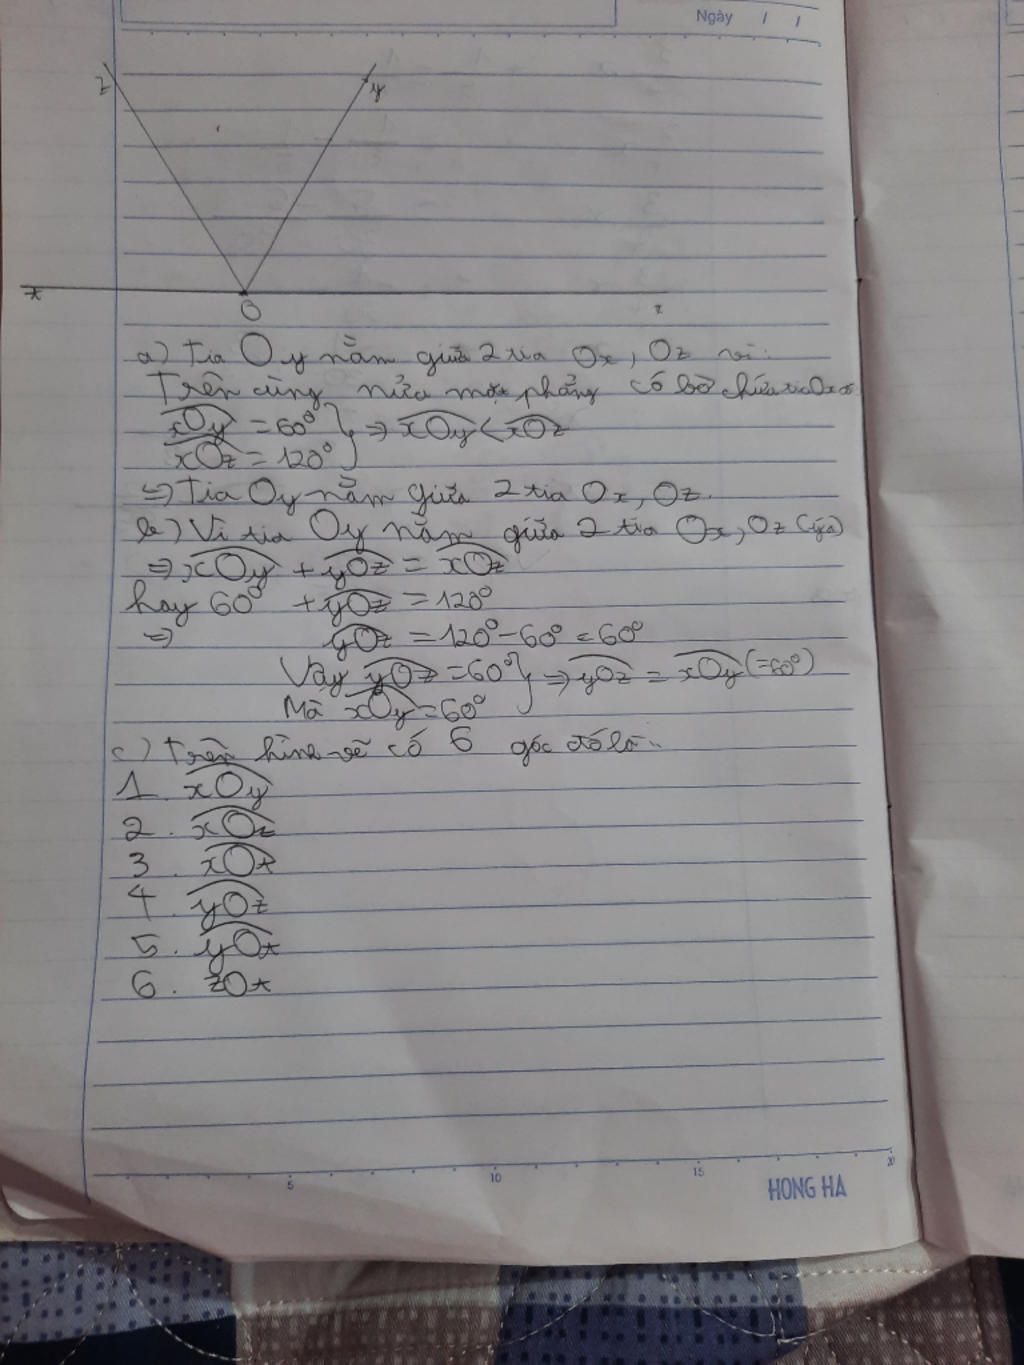 Ngày / /
z
y
x
O
a) Tia Oy nằm giữa 2 tia Ox, Oz vì:
Trên cùng nửa mặt phẳng có bờ chứa tia Ox có
xOy = 60° } => xOy < xOz
xOz = 120°
=> Tia Oy nằm giữa 2 tia Ox, Oz.
b) Vì tia Oy nằm giữa 2 tia Ox, Oz (ý a)
=> xOy + yOz = xOz
hay 60° + yOz = 120°
=> yOz = 120° - 60° = 60°
Vậy yOz = 60° } => yOz = xOy (= 60°)
Mà xOy = 60°
c) Trên hình vẽ có 6 góc đó là:
1. xOy
2. xOz
3. xOt
4. yOz
5. yOt
6. zOt
5 10 15 20
HONG HA